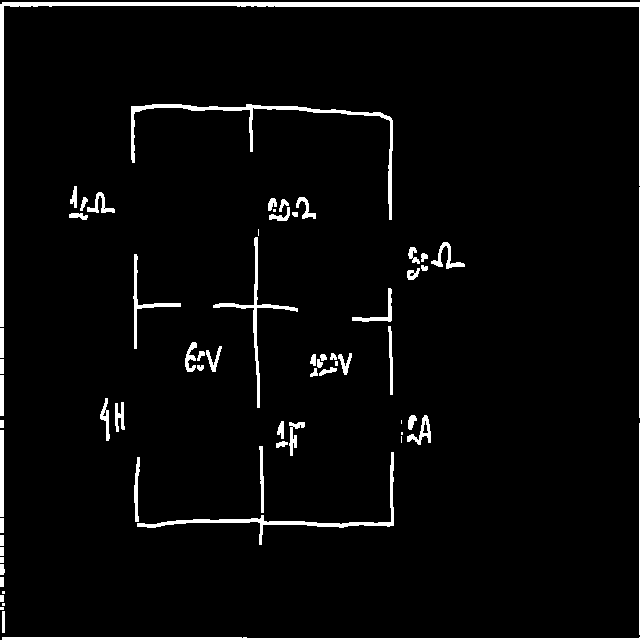 10Ω
20Ω
30Ω
60V
120V
4H
1F
2A